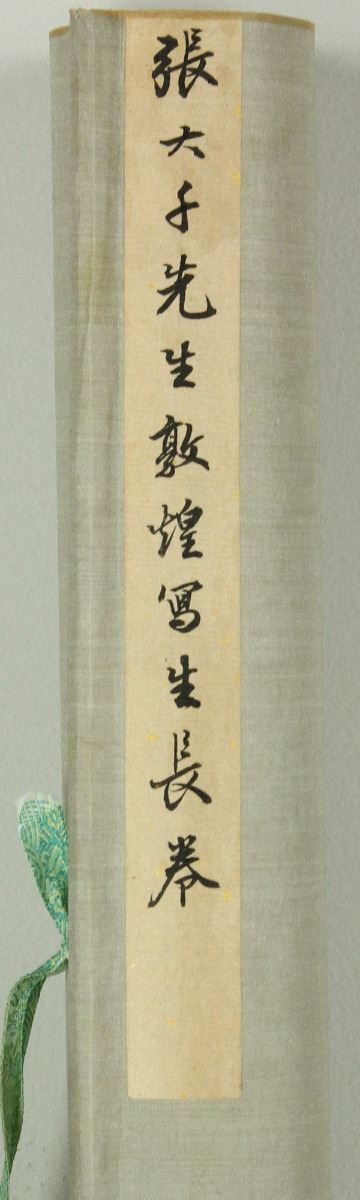 張大千先生敦煌寫生長卷